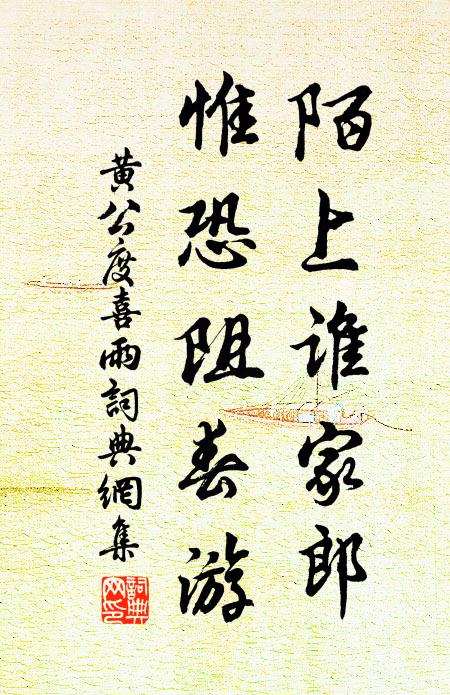 陌上谁家郎
惟恐阻春游
黄公度喜雨詞典網集
詞典网印